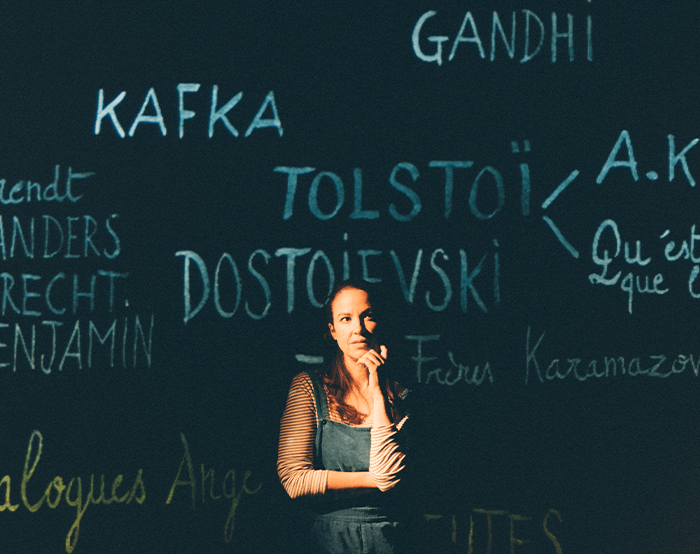 GANDHI
KAFKA
TOLSTOÏ
A.K
DOSTOÏEVSKI
Qu'est
que
rendt
ANDERS
RECHT.
ENJAMIN
Frères Karamazov
alogues Ange